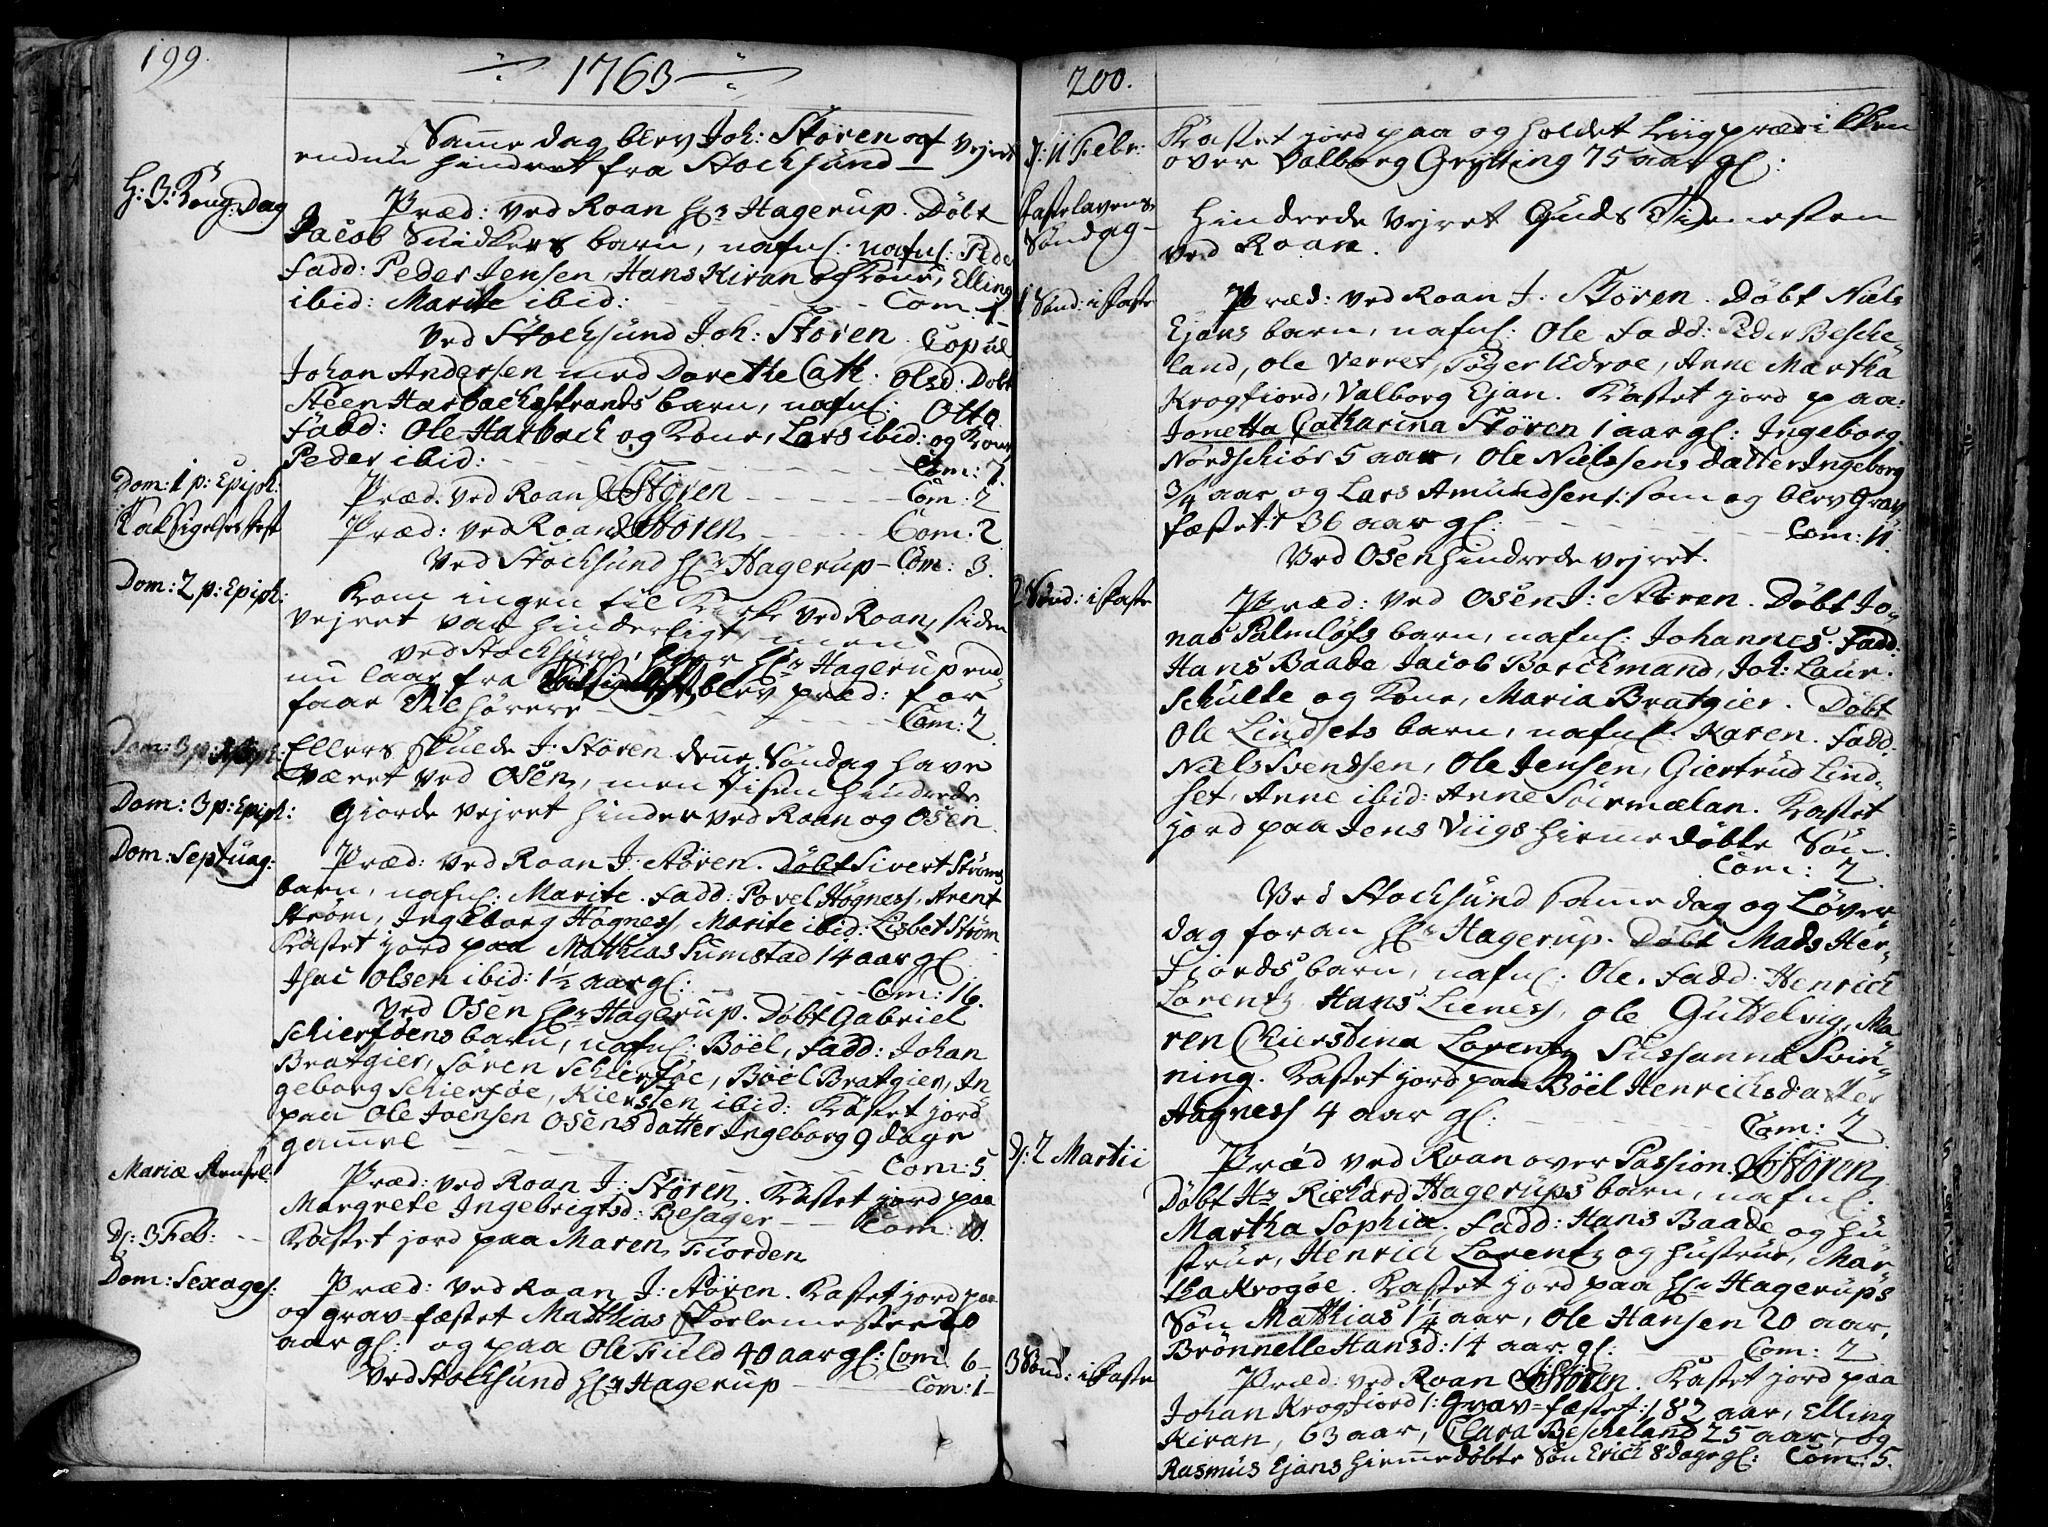 199.
1763
Samme dag blev Joh: Stören af vejret
endnu hindret fra Stocksund
H: 3: Kong: Dag
Præd: ved Roan Hr Hagerup. Döbt
Jacob Snidkers barn, nafnl: nafnl: Peder
Fadd: Peder Jensen, Hans Kiran og Kone, Elling
ibid: Marite ibid: Com: 1
Ved Stocksund Joh: Stören. Copul:
Johan Andersen med Dorethe Cath: Olsd: Döbt
Steen Harbachsstrands barn, nafnl: Otto
Fadd: Ole Harbach og Kone, Lars ibid: og Kone
Peder ibid: Com: 7.
Dom: 1 p: Epiph:
Præd. ved Roan J Stören Com: 2
Taksigelses fest
Præd: ved Roan J Stören Com: 2.
Ved Stocksund Hr Hagerup Com: 3.
Dom: 2 p: Epiph:
Kom ingen til Kirke ved Roan, siden
vejret var hinderligt men
ved Stocksund, hvor Hr Hagerup end¬
nu laae fra blev præd: for
faae Tilhörere Com: 2
Dom: 3 p: Epiph:
Ellers skulde J: Stören denne Söndag have
været ved Osen, men Jisen hindrede
Dom: 3 p: Epiph:
Giorde vejret hinder ved Roan og Osen.
Dom: Septuag:
Præd: ved Roan J: Stören. Döbt Sivert Ströms
barn, nafnl: Marite. Fadd: Povel Hogness, Arent
Ström, Ingeborg Hogness, Marite ibid: Lisbet Ström
Kastet jord paa Matthias Sumstad 14 aar gl.
Isac Olsen ibid: 1½ aar gl: Com: 16.
Ved Osen Hr Hagerup. Döbt Gabriel
Schierföens barn, nafnl: Böel, Fadd: Johan
Bratgier, Sören Schierföe, Böel Bratgier, In¬
geborg Schierföe, Kiersten ibid: Kastet jord
paa Ole Joensen Osens datter Ingeborg 9 dage
gammel Com: 5.
Mariæ Rensel:
Præd: ved Roan J: Stören. Kastet jord paa
Margrete Ingebrigtsd: Besager Com: 10.
D: 3 Feb:
Kastet jord paa Maren Fiorden
Dom: Sexages:
Præd: ved Roan J: Stören. Kastet jord paa
og grav-fæstet Matthias Skolemester 20
aar gl: og paa Ole Field 40 aar gl: Com: 6
Ved Stocksund Hr Hagerup Com: 1
200.
D: 11 Febr:
Kastet jord paa og holdet Liigprædicken
over Valborg Grytting 75 aar gl:
Fastelavens
Söndag
Hindrede vejret Guds Tienesten
ved Roan.
1 Sönd: i faste
Præd: ved Roan J: Stören. Döbt Niels
Ejans barn, nafnl: Ole Fadd: Peder Besche¬
land, Ole Verret, Töger Udroe, Anne Martha
Krogfiord, Valborg Ejan. Kastet jord paa:
Jonetta Catharina Stören 1 aar gl: Ingeborg
Nordschiör 5 aar, Ole Nielssens datter Ingeborg
3/4 aar og Lars Amundsen /: som og blev Grav
fæstet :/ 36 aar gl: Com: 11.
Ved Osen hindrede vejret.
2 Sönd: i faste
Præd: ved Osen J: Stören. Döbt Jo¬
nas Palmlöfs barn, nafnl: Johannes. Fadd:
Hans Baade, Jacob Borckmand, Joh: Laur:
Schulte og Kone, Maria Bratgier. Döbt
Ole Lindsets barn, nafnl. Karen. Fadd:
Niels Svendsen, Ole Jensen, Giertrud Lind¬
set, Anne ibid: Anne Söermælan. Kastet
jord paa Jens Viigs hiemmedöbte Sön.
Com: 2.
Ved Stocksund samme dag og Löver
dag foran Hr Hagerup. Döbt Mads Her¬
fjords barn, nafnl: Ole. Fadd: Henrich
Lorentz, Hans Lieness, Ole Guttelvig, Ma¬
ren Chierstina Lorentz Sussanna Svin¬
ning. Kastet jord paa Böel Henrichsdatter
Hagness 4 aar gl: Com: 2
D: 2 Martii
Præd ved Roan over Passion. J Stören.
Döbt Hr Richard Hagerups barn, nafnl:
Martha Sophia. Fadd: Hans Baade og hu
strue, Henrich Lorentz og hustrue, Mar¬
tha Krogöe. Kastet jord paa Hr Hagerups
Sön Matthias 1¼ aar, Ole Hansen 20 aar,
Brönnelle Hansd: 14 aar gl: Com: 2
3 Sönd: i faste
Præd: ved Roan J Stören. Kastet jord paa
Johan Krogfiord /: Grav-fæstet :/ 82 aar, Elling
Kiran, 63 aar, Clara Bescheland 25 aar, og
Rasmus Ejans hiemmedöbte Sön Erich 8 dage gl: Com: 5.